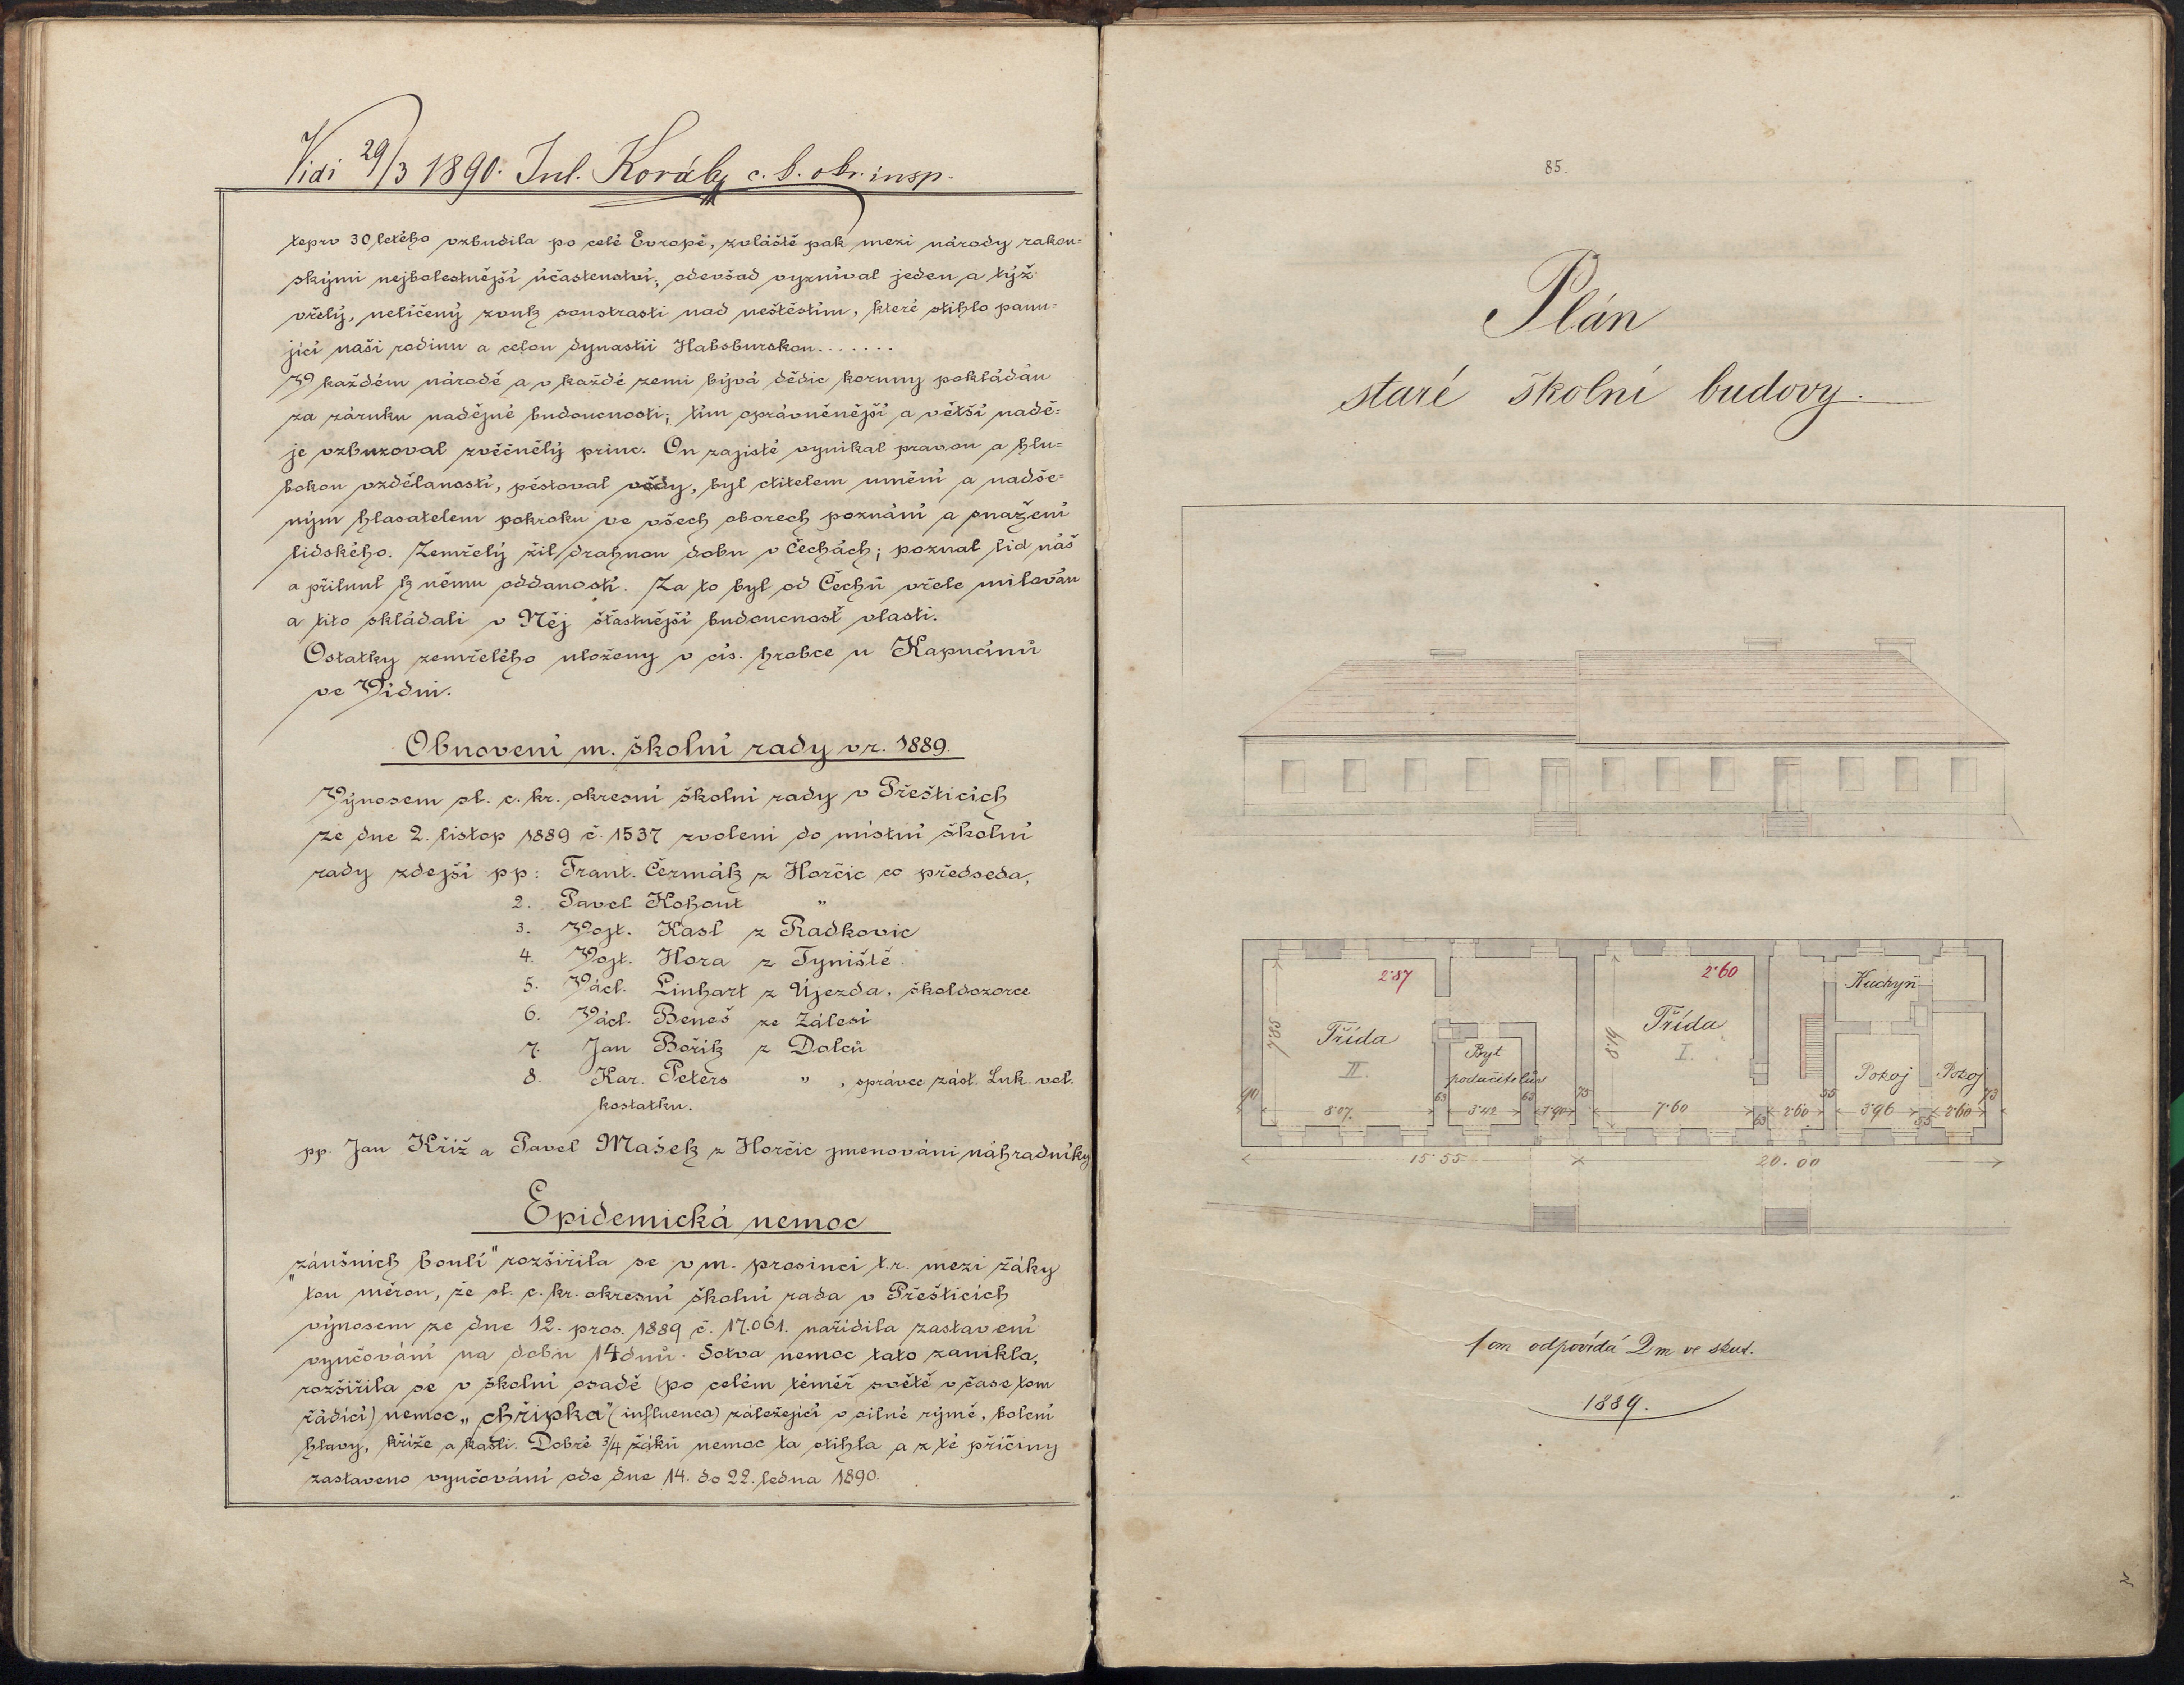 Vidi 29/3 1890. Jul. Kováły c. k. okr. insp.
teprv 30letého vzbudila po celé Evropě, zvláště pak mezi národy rakou=
skými nejbolestnější účastenství, odevšad vyzníval jeden a týž
vřelý, nelíčený zvuk soustrasti nad neštěstím, které stihlo panu=
jící naši rodinu a celou dynastii Habsburskou.......
V každém národě a v každé zemi bývá dědic koruny pokládán
za záruku nadějné budoucnosti; tím oprávněnější a větší nadě=
je vzbuzoval zvěčnělý princ. On zajisté vynikal pravou a hlu=
bokou vzdělaností, pěstoval vědy, byl ctitelem umění a nadše=
ným hlasatelem pokroku ve všech oborech poznání a snažení
lidského. Zemřelý žil drahnou dobu v Čechách; poznal lid náš
a přilnul k němu oddaností. Za to byl od Čechů vřele milován
a tito skládali v Něj šťastnější budoucnosť vlasti.
Ostatky zemřelého uloženy v cís. hrobce u Kapucínů
ve Vídni.
Obnovení m. školní rady v r. 1889.
Výnosem sl. c. kr. okresní školní rady v Přešticích
ze dne 2. listop 1889 č. 1537 zvoleni do místní školní
rady zdejší pp: Frant. Čermák z Horčic co předseda,
2. Pavel Kohout "
3. Vojt. Kasl z Radkovic
4. Vojt. Hora z Týniště
5. Václ. Linhart z Újezda, školdozorce
6. Václ. Beneš ze Zálesí
7. Jan Bořík z Dolců
8. Kar. Peters " , správce zást. Luk. vel.
kostatku.
pp. Jan Kříž a Pavel Mašek z Horčic jmenováni náhradníky
Epidemická nemoc
„záušních boulí" rozšířila se v m. prosinci t.r. mezi žáky
tou měrou, že sl. c. kr. okresní školní rada v Přešticích
výnosem ze dne 12. pros. 1889 č. 17.061. nařídila zastavení
vyučování na dobu 14 dnů. Sotva nemoc tato zanikla,
rozšířila se v školní osadě (po celém téměř světě v čase tom
řádící) nemoc „chřipka" (influenca) záležející v silné rýmě, bolení
hlavy, kříže a kašli. Dobré 3/4 žáků nemoc ta stihla a z té příčiny
zastaveno vyučování ode dne 14. do 22. ledna 1890.
85.
Plán
staré školní budovy.
2·87
2·60
Kuchyň
Třída
II.
7.85
Byt
podučitelův
Třída
I.
8·14
Pokoj
Pokoj
90
8·07.
63
3·42
63
1·90
75
7·60
63
2·60
55
3·96
55
2·60
73
15·55
20.00
1 cm odpovídá 2 m ve skut.
1889.